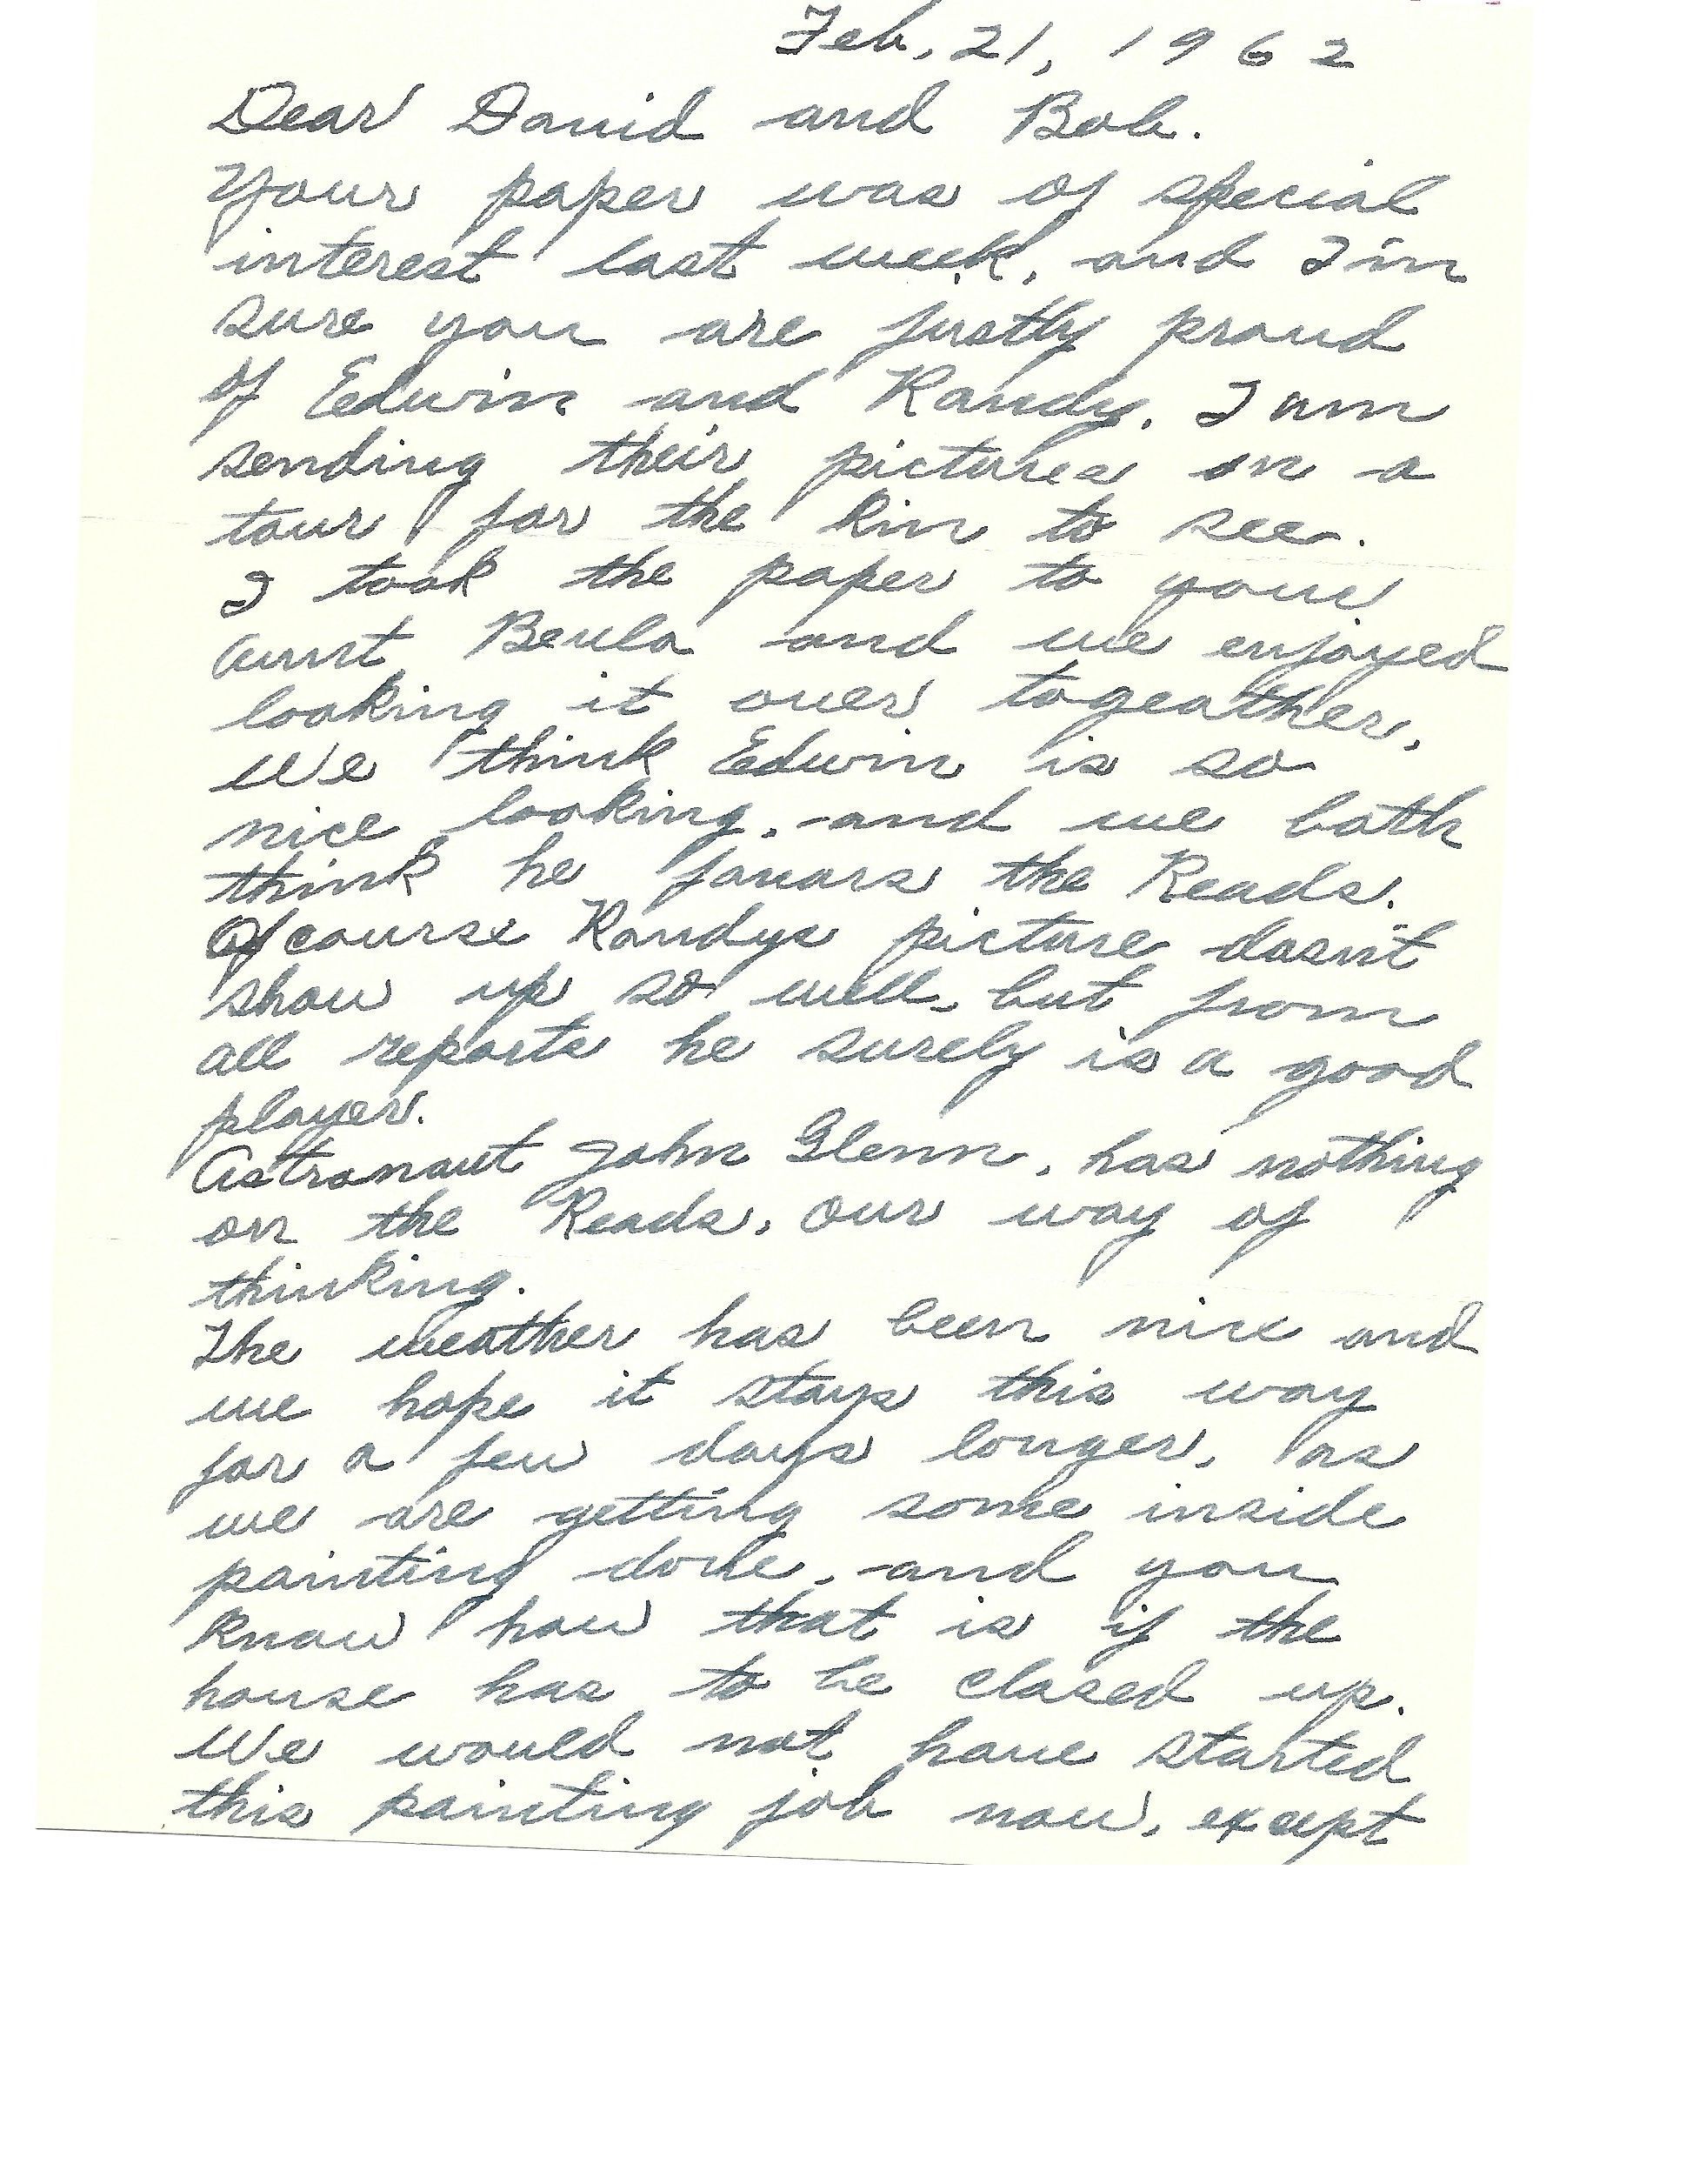 Feb, 21, 1962
Dear David and Bob.
Your paper was of special
interest last week, and I'm
sure you are justly proud
of Edwin and Randy. I am
sending their pictures on a
tour for the kin to see.
I took the paper to your
Aunt Beula and we enjoyed
looking it over togeather,
We think Edwin is so
nice looking, and we both
think he favors the Reads.
Of course Randys picture dosn't
show up so well, but from
all reports he surely is a good
player.
Astronaut John Glenn, has nothing
on the Reads, our way of
thinking.
The weather has been nice and
we hope it stays this way
for a few days longer, as
we are getting some inside
painting done, and you
know how that is if the
house has to be closed up.
We would not have started
this painting job now, except